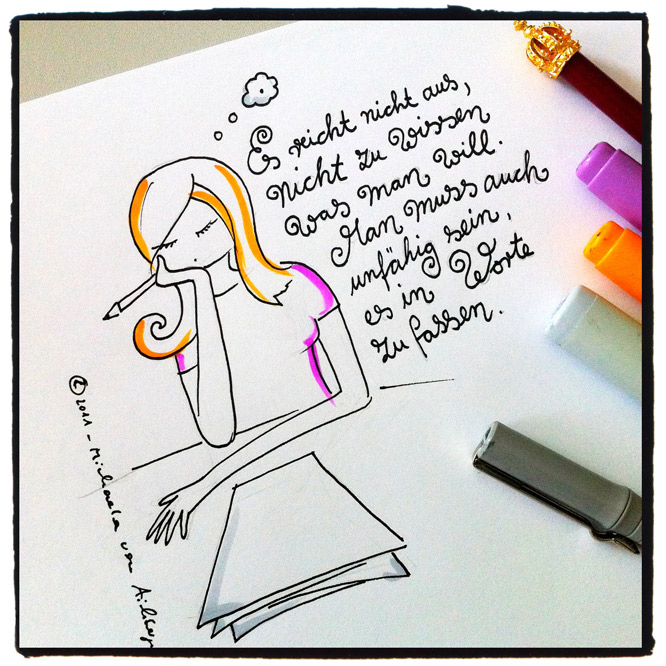 Es reicht nicht aus,
nicht zu wissen
was man will.
Man muss auch
unfähig sein,
es in Worte
zu fassen.
2011 - Michaela von